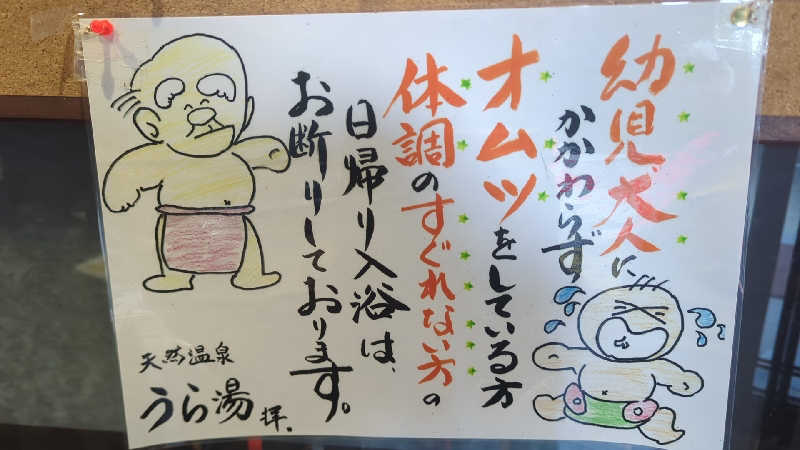 幼児犬人に
かかわらず
オムツをしている方
体調のすぐれない方の
日帰り入浴は、
お断りしております。
天然温泉
うら湯 拝.